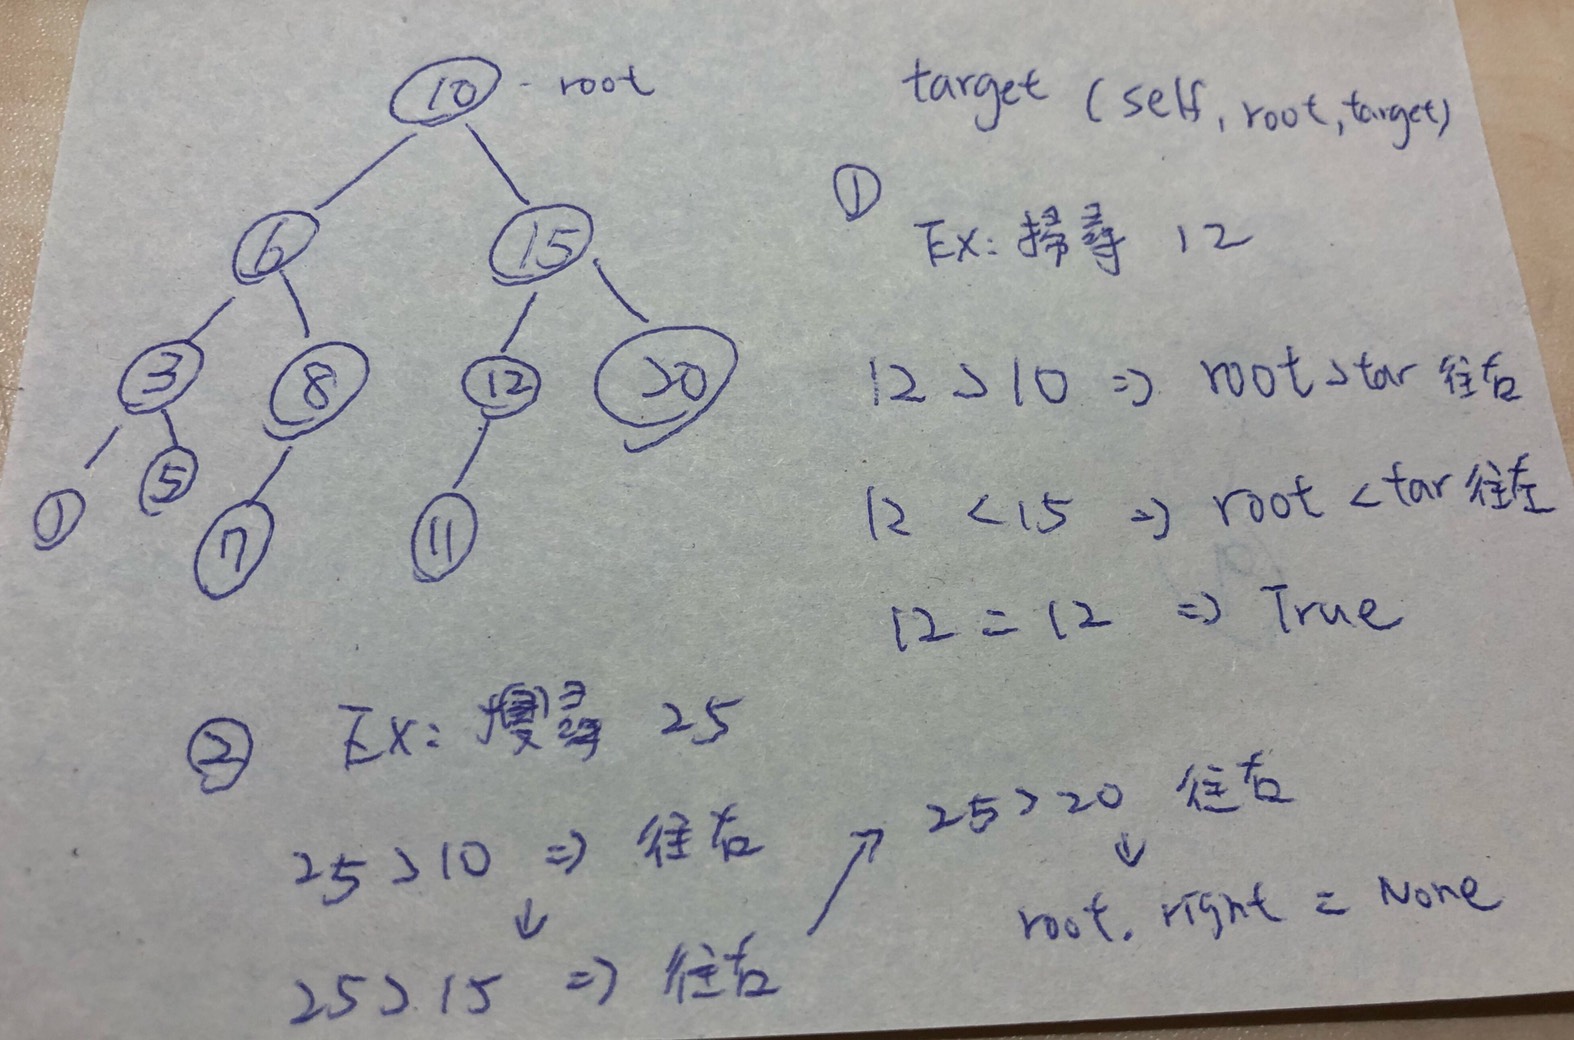 10 - root
6 15
3 8 12 20
1 5 7 11
target (self, root, target)
①
Ex: 掃尋 12
12 > 10 => root > tar 往右
12 < 15 => root < tar 往左
12 = 12 => True
② Ex: 搜尋 25
25 > 10 => 往右
↓
25 > 15 => 往右
↗ 25 > 20 往右
↓
root. right = None